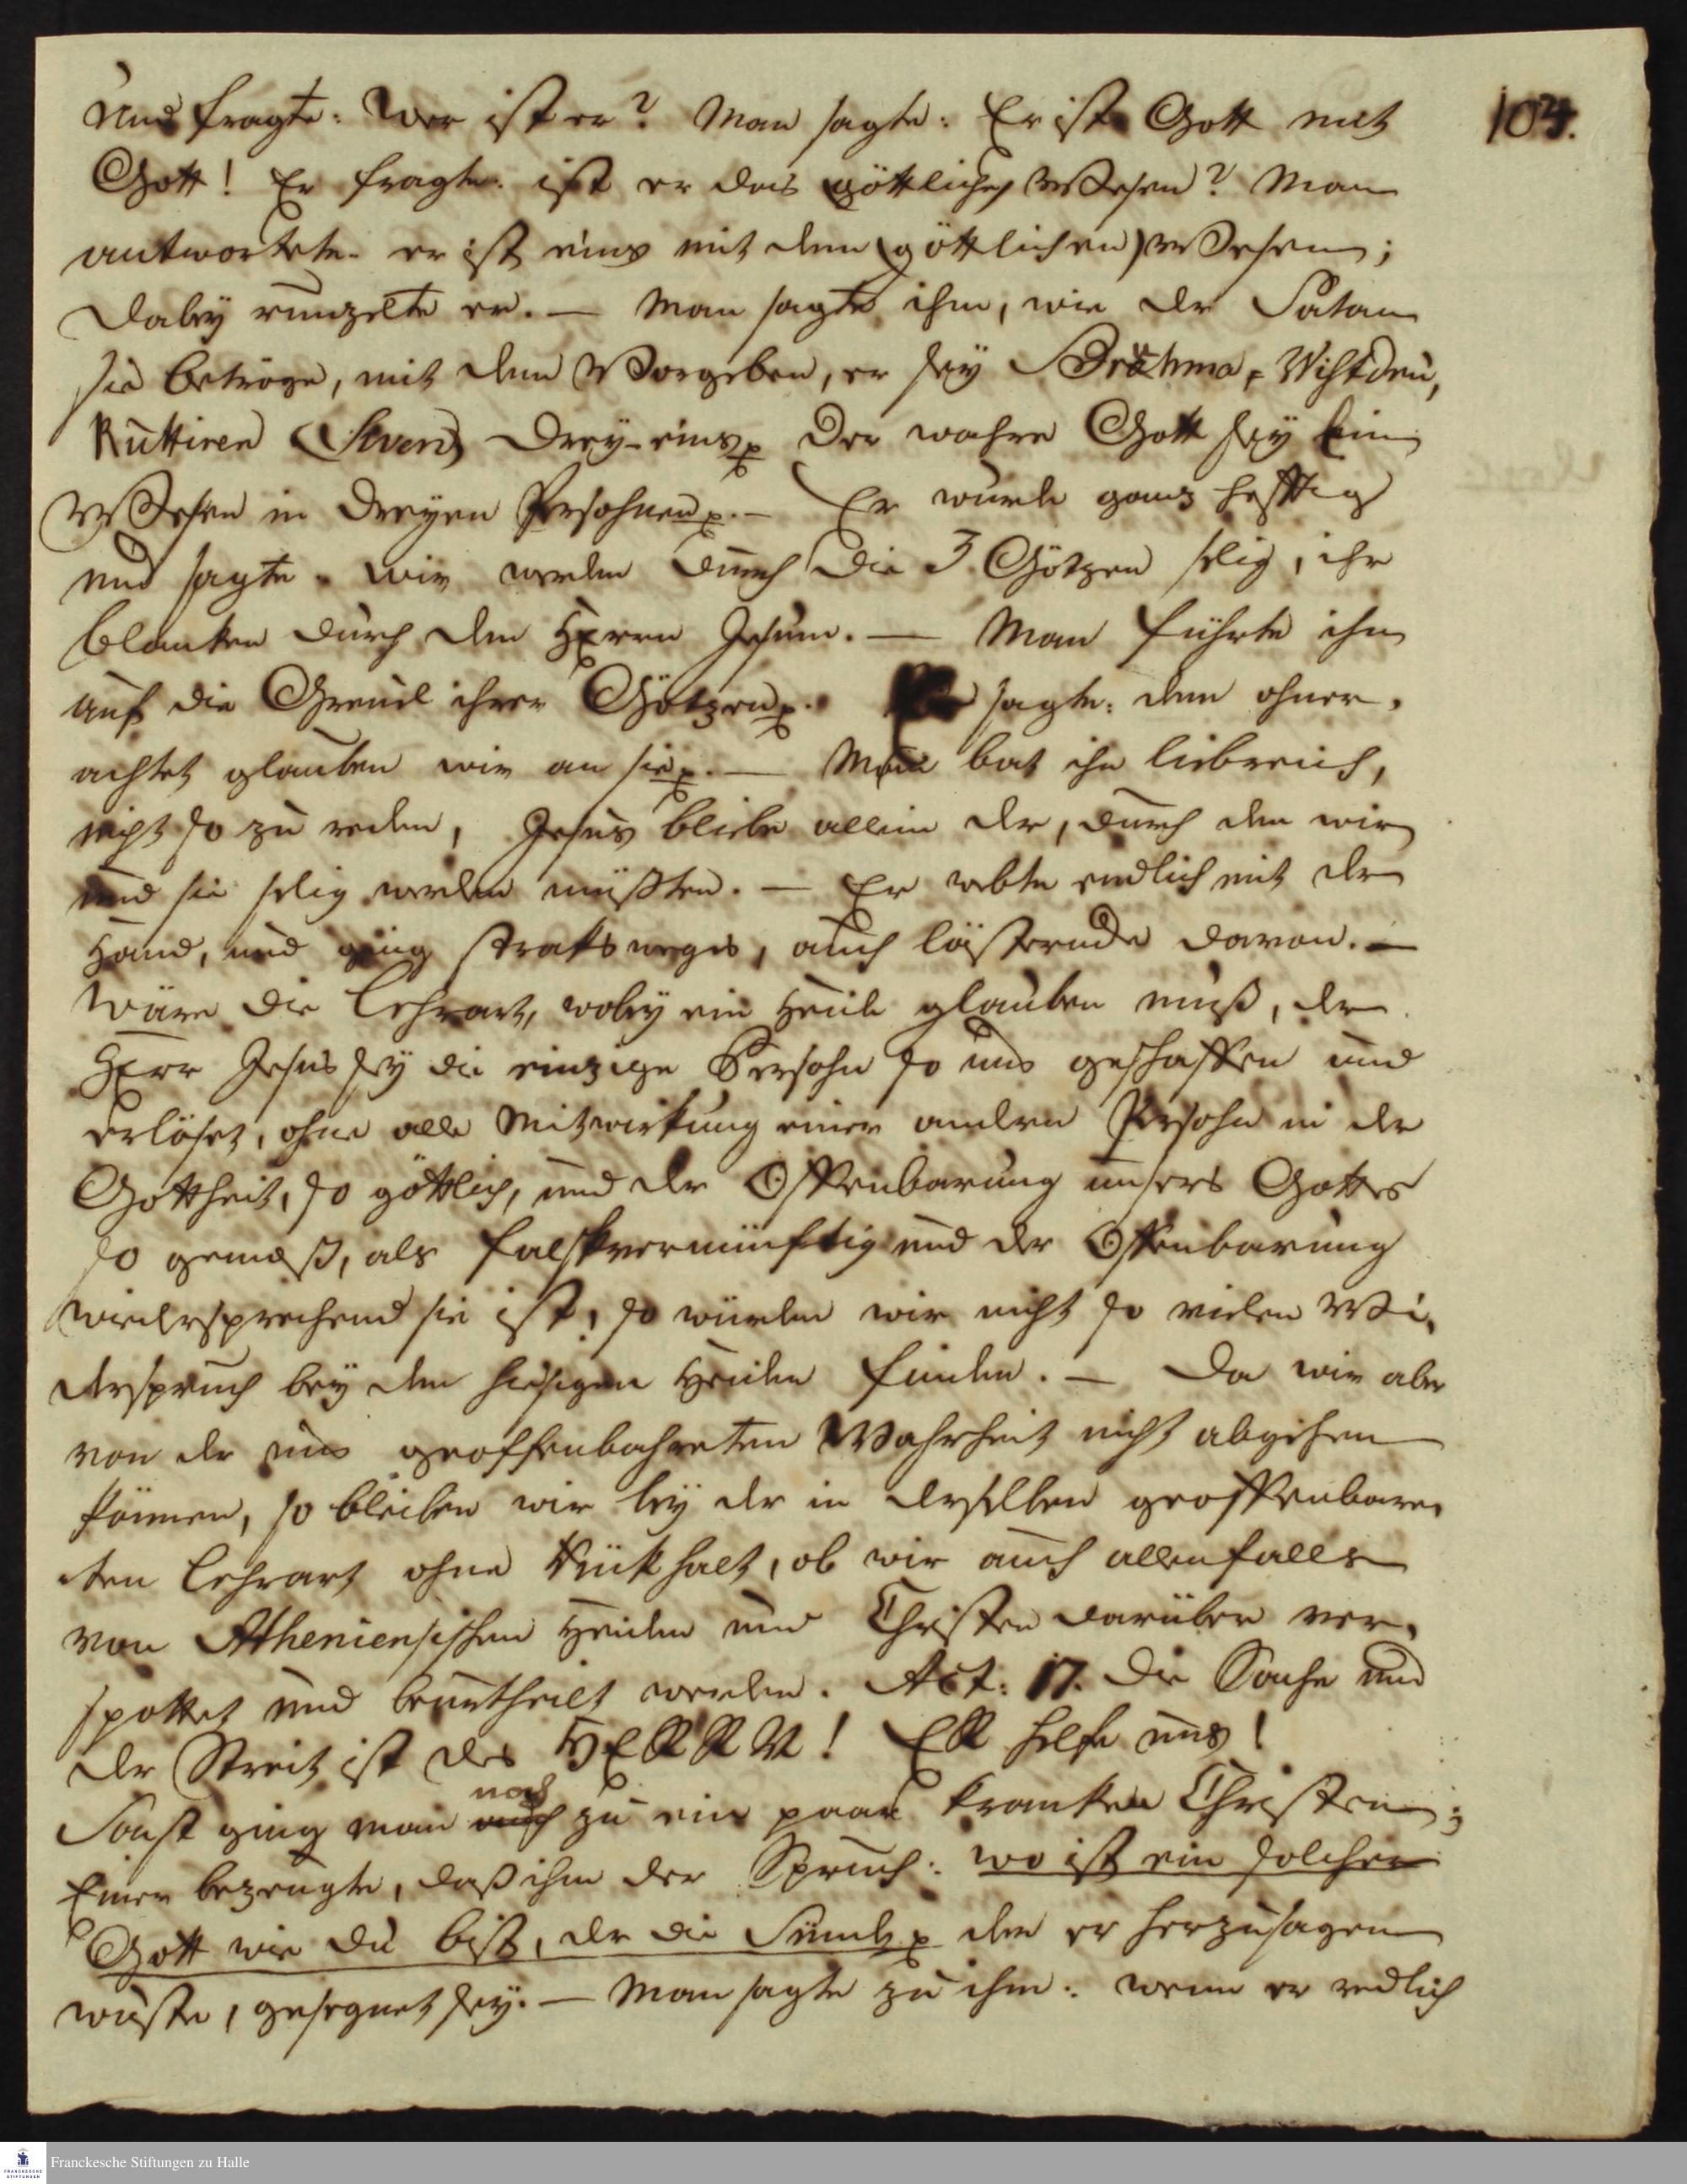 und fragte: wer ist er? Man sagte: Er ist Gott mit
104.
Gott! Er fragte: ist er das göttliche Wesen? Man
antwortete: er ist eins mit dem göttlichen Wesen;
dabey runzelte er. — Man sagte ihm, wie der Satan
sie betröge, mit dem Vorgeben, er sey Brahma, Wischdnu,
Ruttiren (Siven) drey-eins p Der wahre Gott sey Ein
Wesen in dreyen Persohnen p. — Er wurde ganz hefftig
und sagte: wir werden durch die 3 Götzen selig, ihr
blanken durch den HErrn Jesum. — Man führte ihn
auf die Greuel ihrer Götzen p. Er sagte: dem ohner-
achtet glauben wir an sie p. — Man bat ihn liebreich,
nicht so zu reden, Jesus bliebe allein der, durch den wir
und sie selig werden müßten. — Er webte endlich mit der
Hand, und ging straks weges, auch lästernde davon. —
Wäre die Lehrart, wobey ein Heide glauben muß, der
HErr Jesus sey die einzige Persohn so uns geschaffen und
erlöset, ohne alle Mitwirkung einer andern Persohn in der
Gottheit, so göttlich, und der Offenbarung unsers Gottes
so gemäß, als falschvernünftig und der Offenbarung
wiedersprechend sie ist, so würden wir nicht so vielen Wi-
derspruch bey den hiesigen Heiden finden. — Da wir aber
von der uns geoffenbahreten Wahrheit nicht abgehen
können, so bleiben wir bey der in derselben geoffenbare-
ten Lehrart ohne Rükhalt, ob wir auch allenfalls
von Atheniensischen Heiden und Christen darüber ver-
spottet und beurtheilt werden. Act: 17. Die Sache und
der Streit ist des HERRN! ER helfe uns!
noch
Sonst ging man auch zu ein paar kranken Christen;
Einer bezeugte, daß ihm der Spruch: wo ist ein solcher
Gott wie du bist, der die Sünde p den er herzusagen
wuste, gesegnet sey. — Man sagte zu ihm: wenn er redlich
Franckesche Stiftungen zu Halle